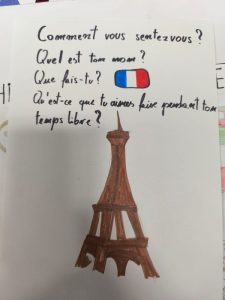 Comment vous sentez vous?
Quel est ton nom?
Que fais-tu?
Qu'est-ce que tu aimes faire pendant ton
temps libre?